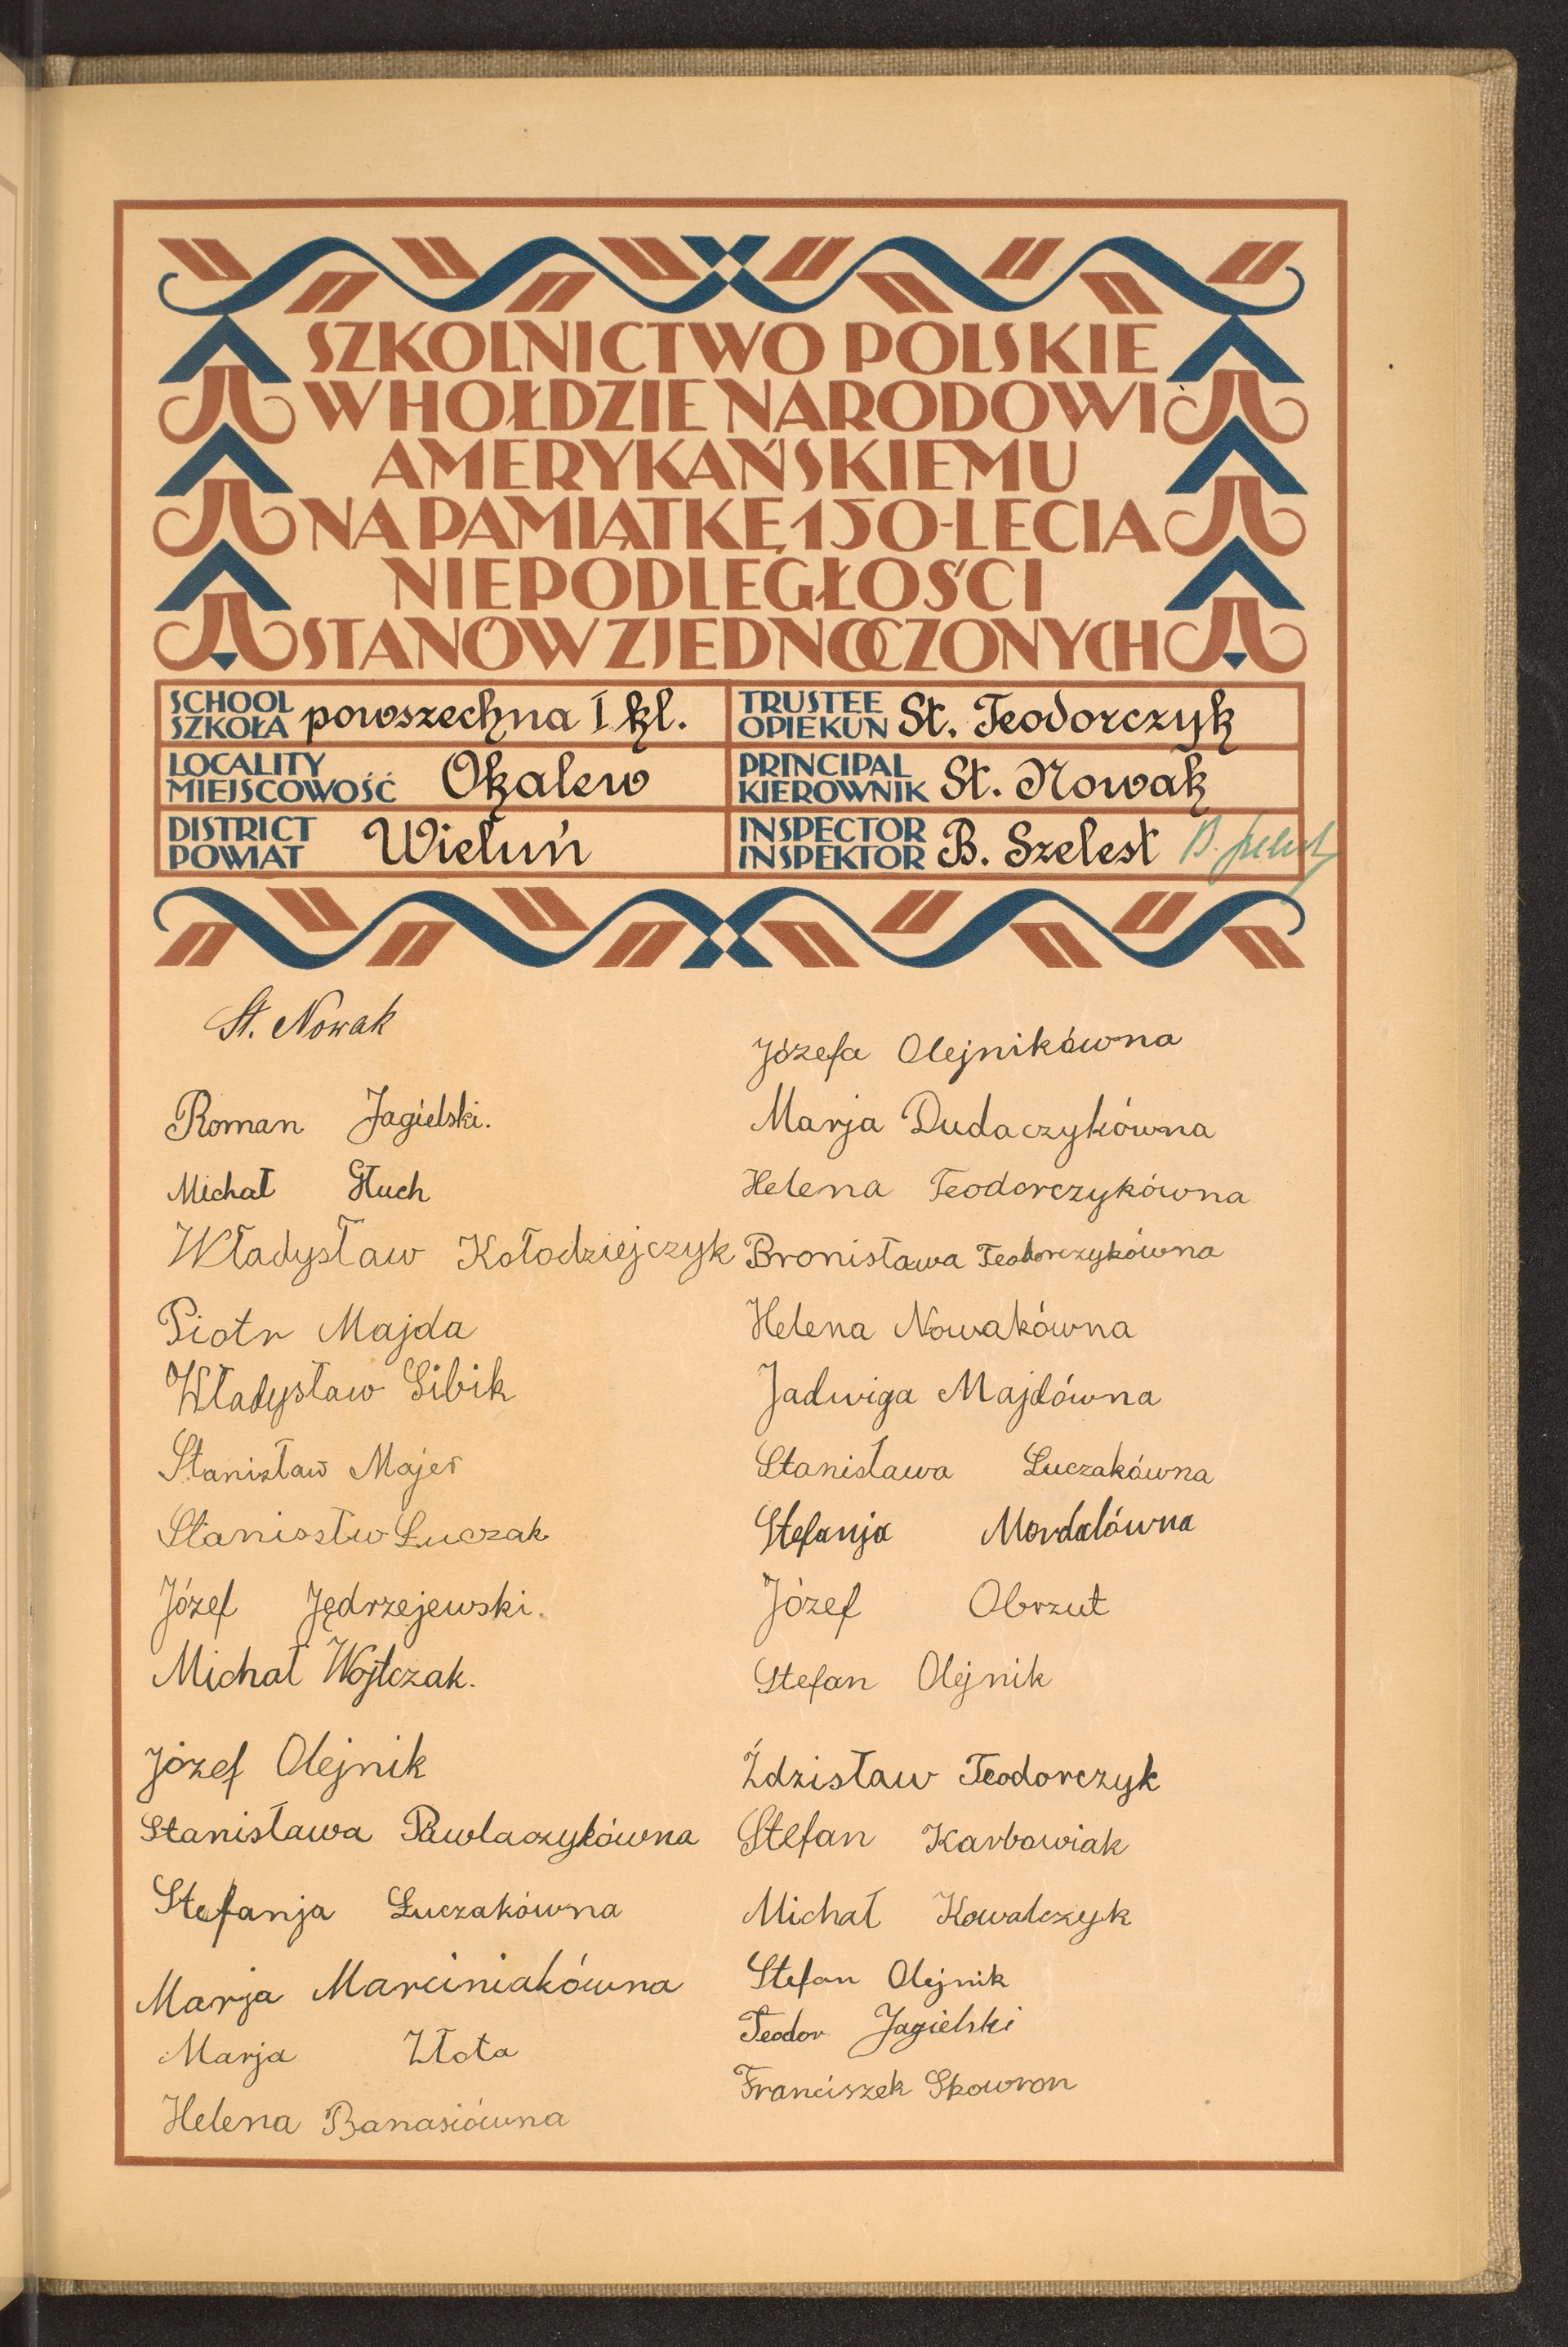 SZKOLNICTWO POLSKIE
W HOŁDZIE NARODOWI
AMERYKAŃSKIEMU
NA PAMIĄTKĘ 150-LECIA
NIEPODLEGŁOŚCI
STANÓW ZJEDNOCZONYCH
SCHOOL
SZKOŁA powszechna I kl.
TRUSTEE
OPIEKUN St. Teodorczyk
LOCALITY
MIEJSCOWOŚĆ Okalew
PRINCIPAL
KIEROWNIK St. Nowak
DISTRICT
POWIAT Wieluń
INSPECTOR
INSPEKTOR B. Szelest B. Szelest
St. Nowak
Roman Jagielski.
Michał Głuch
Władysław Kołodziejczyk
Piotr Majda
Władysław Gibik
Stanisław Majer
Stanissłw Łuczak
Józef Jędrzejewski.
Michał Wojtczak.
Józef Olejnik
Stanisława Pawlaczykówna
Stefanja Łuczakówna
Marja Marciniakówna
Marja Złota
Helena Banasiówna
Józefa Olejnikówna
Marja Dudaczykówna
Helena Teodorczykówna
Bronisława Teodorczykówna
Helena Nowakówna
Jadwiga Majdówna
Stanisława Łuczakówna
Stefanja Mordalówna
Józef Obrzut
Stefan Olejnik
Ździsław Teodorczyk
Stefan Karbowiak
Michał Kowalczyk
Stefan Olejnik
Teodor Jagielski
Franciszek Skowron